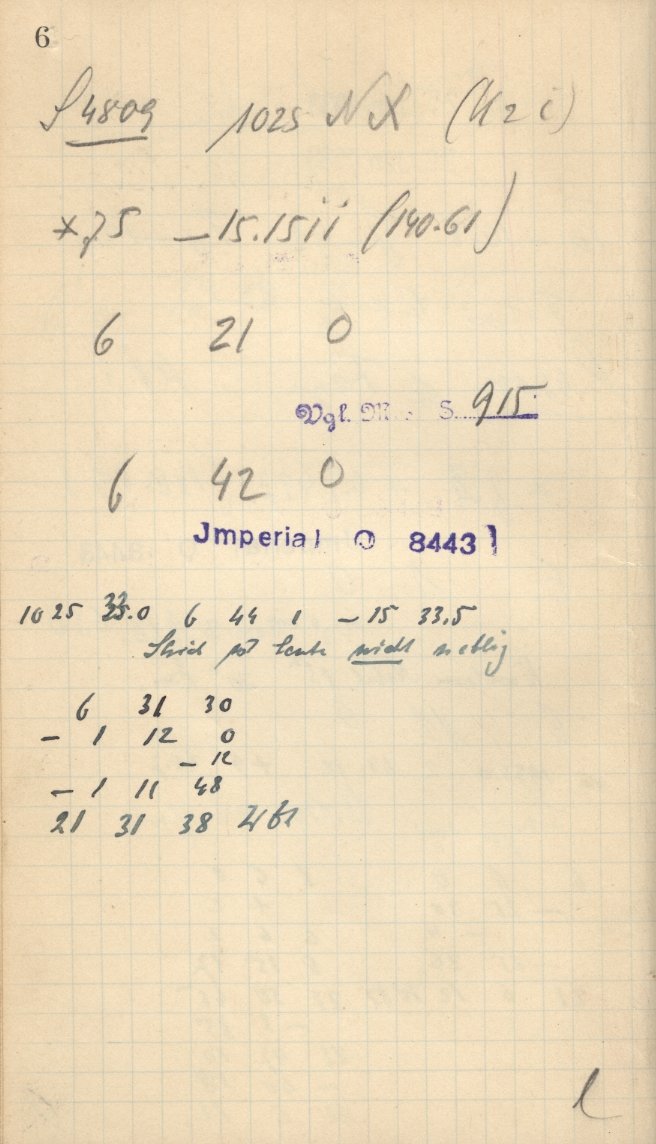 6
S 4809 1025 NX (Kz i)
*75 -15.15ii (140.61)
6 21 0
Vgl. M. S. 915
6 42 0
Jmperial O 8443
1025 33.0 6 44 1 -15 33.5
ist heute nicht nötig
6 31 30
- 1 12 0
- 12
- 1 11 48
21 31 38